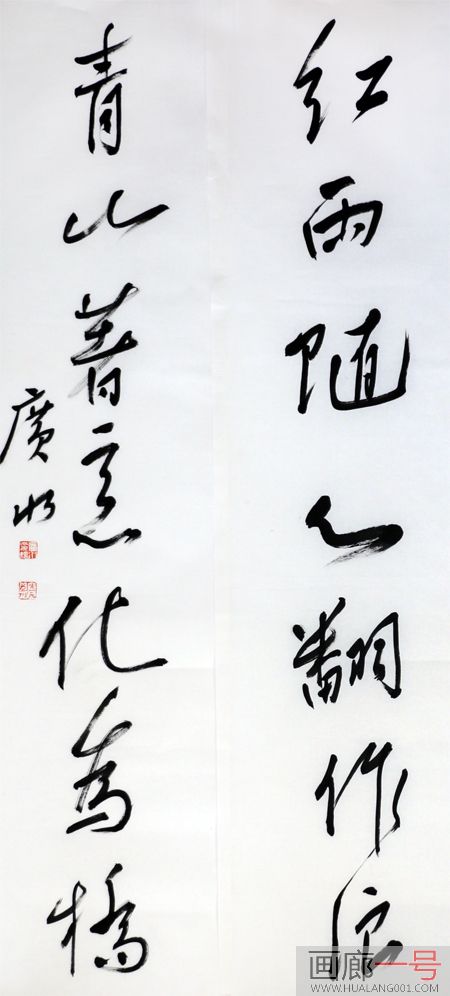 红雨随心翻作浪
青山著意化为橋
廣
画廊一号
WWW.HUALANG001.COM